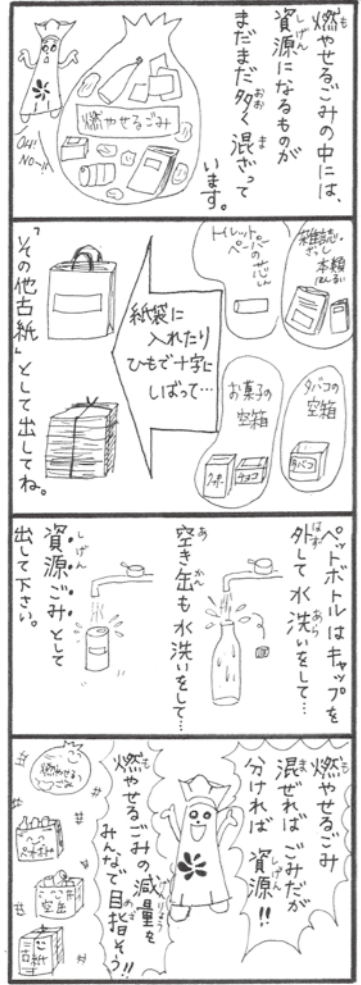 「燃やせるごみの中には、
資源になるものが
まだまだ多く混ざって
います。
燃やせるごみ
OH!
NO~!!
雑誌・
本類
トイレット
ペーパー
の芯
タバコの
空箱
タバコ
お菓子の
空箱
クッキー
チョコ
紙袋に
入れたり
ひもで十字に
しばって…
「その他古紙」として出してね。
ペットボトルはキャップを
外して水洗いをして…
空き缶も水洗いをして…
資源ごみとして
出して下さい。
燃やせるごみ
混ぜればごみだが
分ければ資源!!
燃やせるごみの減量を
みんなで目指そう!!
燃やせる
ごみ
ペットボトル
空缶
古紙